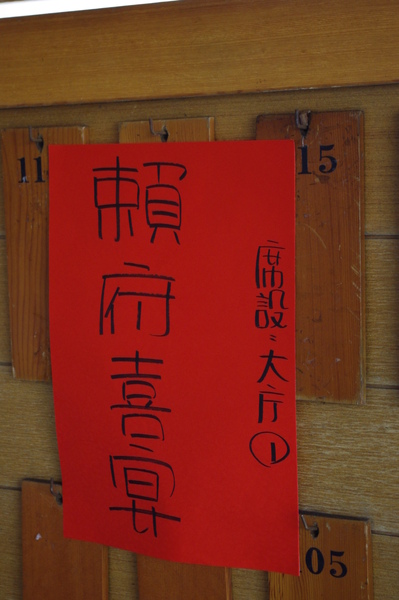 席設:大厅①
賴府喜宴
11
15
05